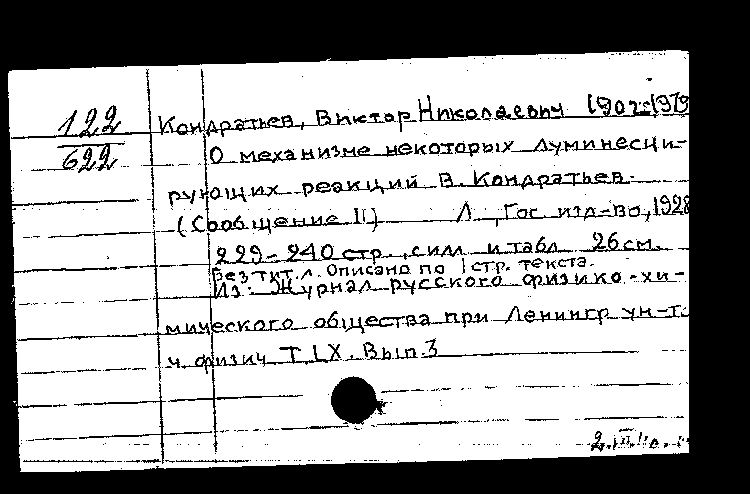 122
622
Кондратьев, Виктор Николаевич 1902-1979
О механизме некоторых луминесци-
рующих реакций В. Кондратьев.
(Сообщение II) Л., Гос. изд-во, 1928
229-240 стр., с илл. и табл. 26 см.
Без тит. л. Описано по 1 стр. текста.
Из: Журнал русского физико-хи-
мического общества при Ленингр. ун-т.
ч. физич. Т. LX. Вып. 3